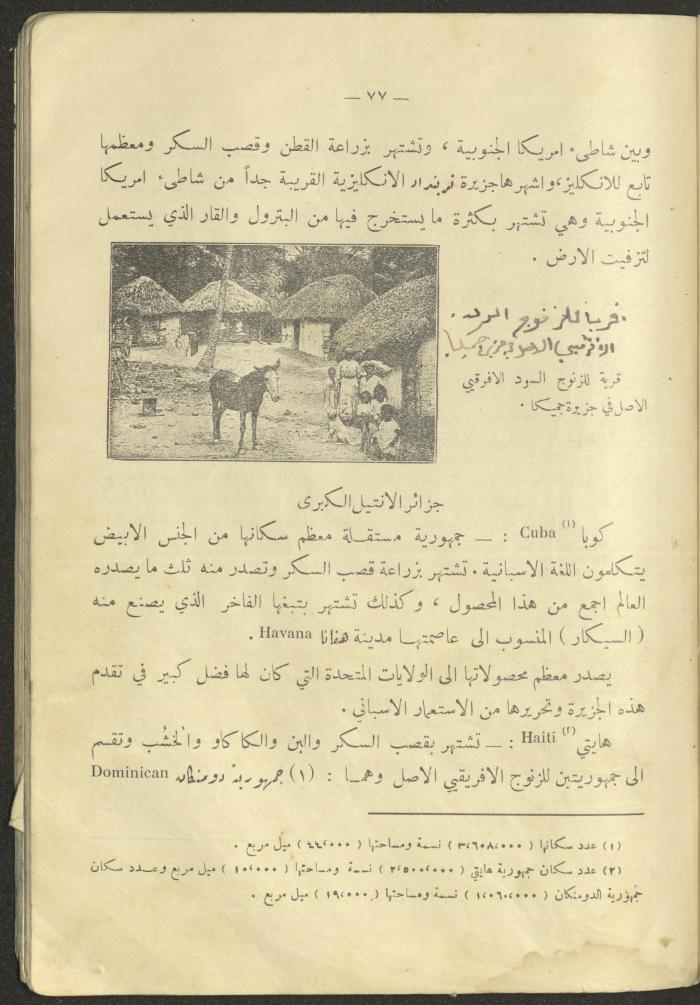 — ٧٧ —
وبين شاطىء امريكا الجنوبية ، وتشتهر بزراعة القطن وقصب السكر ومعظمها
تابع للانكليز،واشهرها جزيرة ترنداد الانكليزية القريبة جداً من شاطىء امريكا
الجنوبية وهي تشتهر بكثرة ما يستخرج فيها من البترول والقار الذي يستعمل
لتزفيت الارض .
للزنوج
قرية للزنوج السود الافرقيي
الاصل في جزيرة جميكا .
جزائر الانتيل الكبرى
كوبا (١) Cuba : — جمهورية مستقلة معظم سكانها من الجنس الابيض
يتكلمون اللغة الاسبانية . تشتهر بزراعة قصب السكر وتصدر منه ثلث ما يصدره
العالم اجمع من هذا المحصول ، وكذلك تشتهر بتبغها الفاخر الذي يصنع منه
( السيكار ) المنسوب الى عاصمتها مدينة هفانا Havana .
يصدر معظم محصولاتها الى الولايات المتحدة التي كان لها فضل كبير في تقدم
هذه الجزيرة وتحريرها من الاستعمار الاسباني .
هايتي (٢) Haiti : — تشتهر بقصب السكر والبن والكاكاو والخشُب وتقسم
الى جمهوريتين للزنوج الافريقيي الاصل وهما : (١) جمهورية دومنكان Dominican
(١) عدد سكانها ( ٣،٦٠٨،٠٠٠ ) نسمة ومساحتها ( ٤٤،٠٠٠ ) ميل مربع .
(٢) عدد سكان جمهورية هايتي ( ٢،٥٠٠،٠٠٠ ) نسمة ومساحتها ( ١٠،٠٠٠ ) ميل مربع وعدد سكان
جمهورية الدومنكان ( ١،٠٦٠،٠٠٠ ) نسمة ومساحتها ( ١٩،٠٠٠ ) ميل مربع .